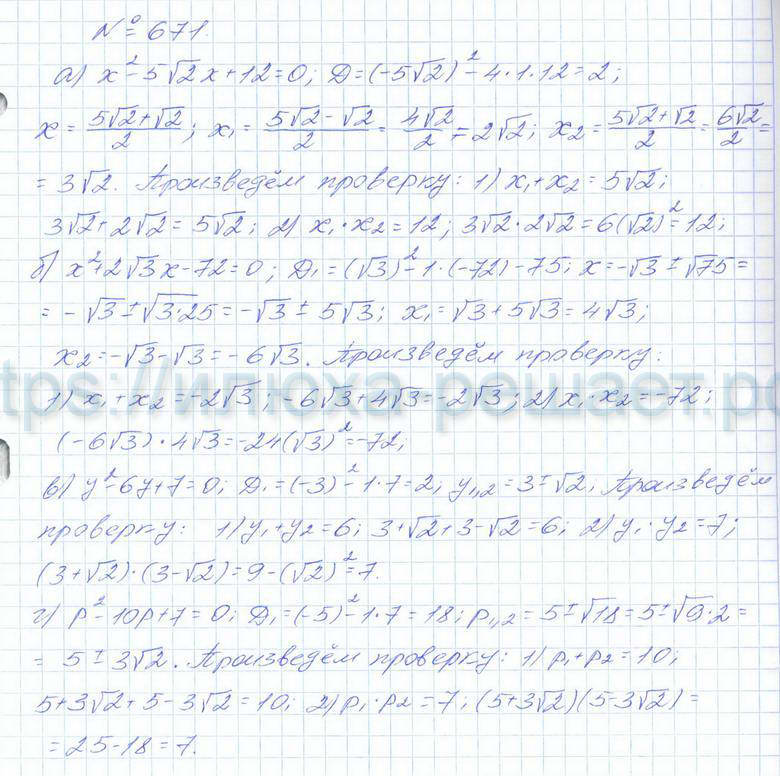 № 671.
а) x² - 5√2x + 12 = 0; Д = (-5√2)² - 4·1·12 = 2;
x = (5√2 ± √2)/2; x₁ = (5√2 - √2)/2 = 4√2/2 = 2√2; x₂ = (5√2 + √2)/2 = 6√2/2 =
= 3√2. Произведём проверку: 1) x₁ + x₂ = 5√2;
3√2 + 2√2 = 5√2; 2) x₁ · x₂ = 12; 3√2 · 2√2 = 6(√2)² = 12;
б) x² + 2√3x - 72 = 0; Д₁ = (√3)² - 1·(-72) - 75; x = -√3 ± √75 =
= -√3 ± √3·25 = -√3 ± 5√3; x₁ = √3 + 5√3 = 4√3;
x₂ = -√3 - √3 = -6√3. Произведём проверку:
tps://илюха-решает.ро
1) x₁ + x₂ = -2√3; -6√3 + 4√3 = -2√3; 2) x₁ · x₂ = -72;
(-6√3) · 4√3 = -24(√3)² = -72;
в) y² - 6y + 7 = 0; Д₁ = (-3)² - 1·7 = 2; y₁,₂ = 3 ± √2. Произведём
проверку: 1) y₁ + y₂ = 6; 3 + √2 + 3 - √2 = 6; 2) y₁ · y₂ = 7;
(3 + √2) · (3 - √2) = 9 - (√2)² = 7.
г) p² - 10p + 7 = 0; Д₁ = (-5)² - 1·7 = 18; p₁,₂ = 5 ± √18 = 5 ± √9·2 =
= 5 ± 3√2. Произведём проверку: 1) p₁ + p₂ = 10;
5 + 3√2 + 5 - 3√2 = 10; 2) p₁ · p₂ = 7; (5 + 3√2)(5 - 3√2) =
= 25 - 18 = 7.